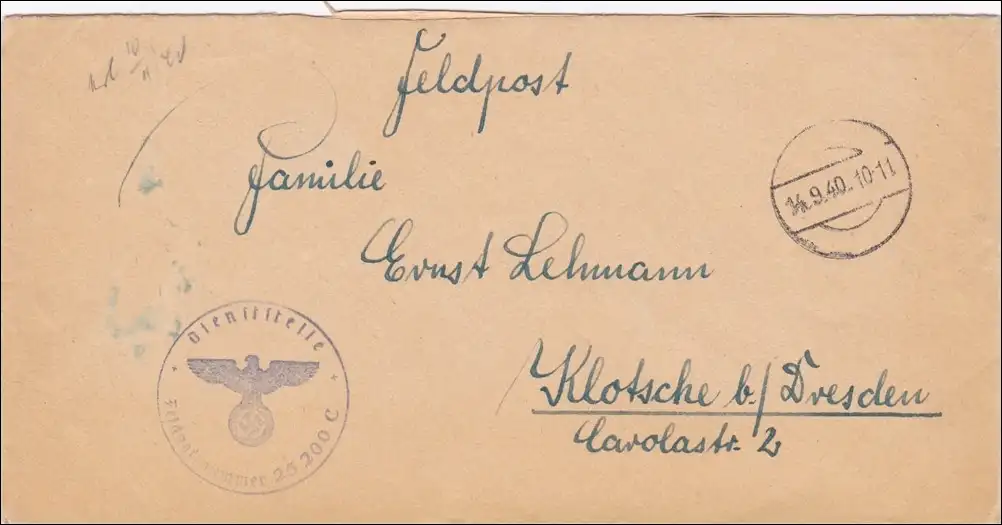 Feldpost
Familie
Ernst Lehmann
Klotsche b./Dresden
Carolastr. 2
14.9.40.10-11
Dienststelle
Feldpostnummer 25200 C